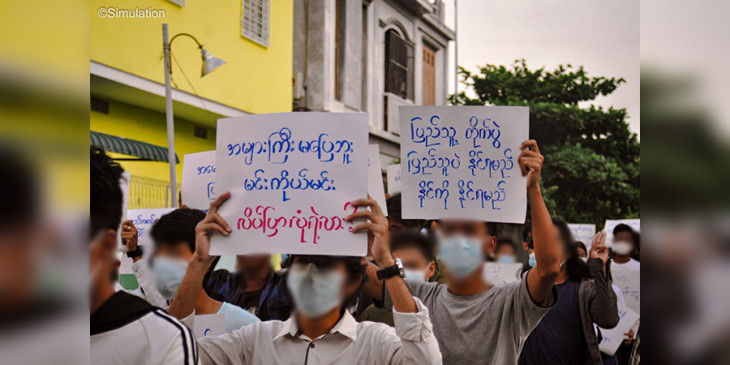 ©Simulation
အများကြီး မပြောဘူး
မင်းကိုယ်မင်း
လိပ်ပြာလုံရဲ့လား
ပြည်သူ့ တိုက်ပွဲ
ပြည်သူပဲ နိုင်ရမည်
နိုင်ကို နိုင်ရမည်